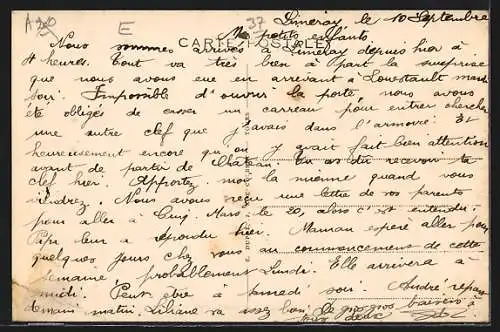 A 20 E 37
Limeray, le 10 Septembre
Mes petits enfants
CARTE POSTALE
Nous sommes arrivés à Limeray depuis hier à
4 heures. Tout va très bien à part la surprise
que nous avons eue en arrivant à mardi
soir. Impossible d'ouvrir la porte nous avons
été obligés de casser un carreau pour entrer chercher
une autre clef que j'avais dans l'armoire. Et
heureusement encore qu'on y avait fait bien attention
avant de partir de Château. On as dû recevoir ta
clef hier. Apportez moi la mienne quand vous
viendrez. Nous avons reçu une lettre de vos parents
pour aller à Cinq Mars le 20, alors c'est entendu
Papi leur a répondu hier. Maman espère aller pour
quelques jours chez vous au commencement de cette
semaine, probablement Lundi. Elle arrivera à
midi. Peut être à samedi soir. André repar
demain matin. Liliane va assez bien. De gros gros baisers à
tous deux